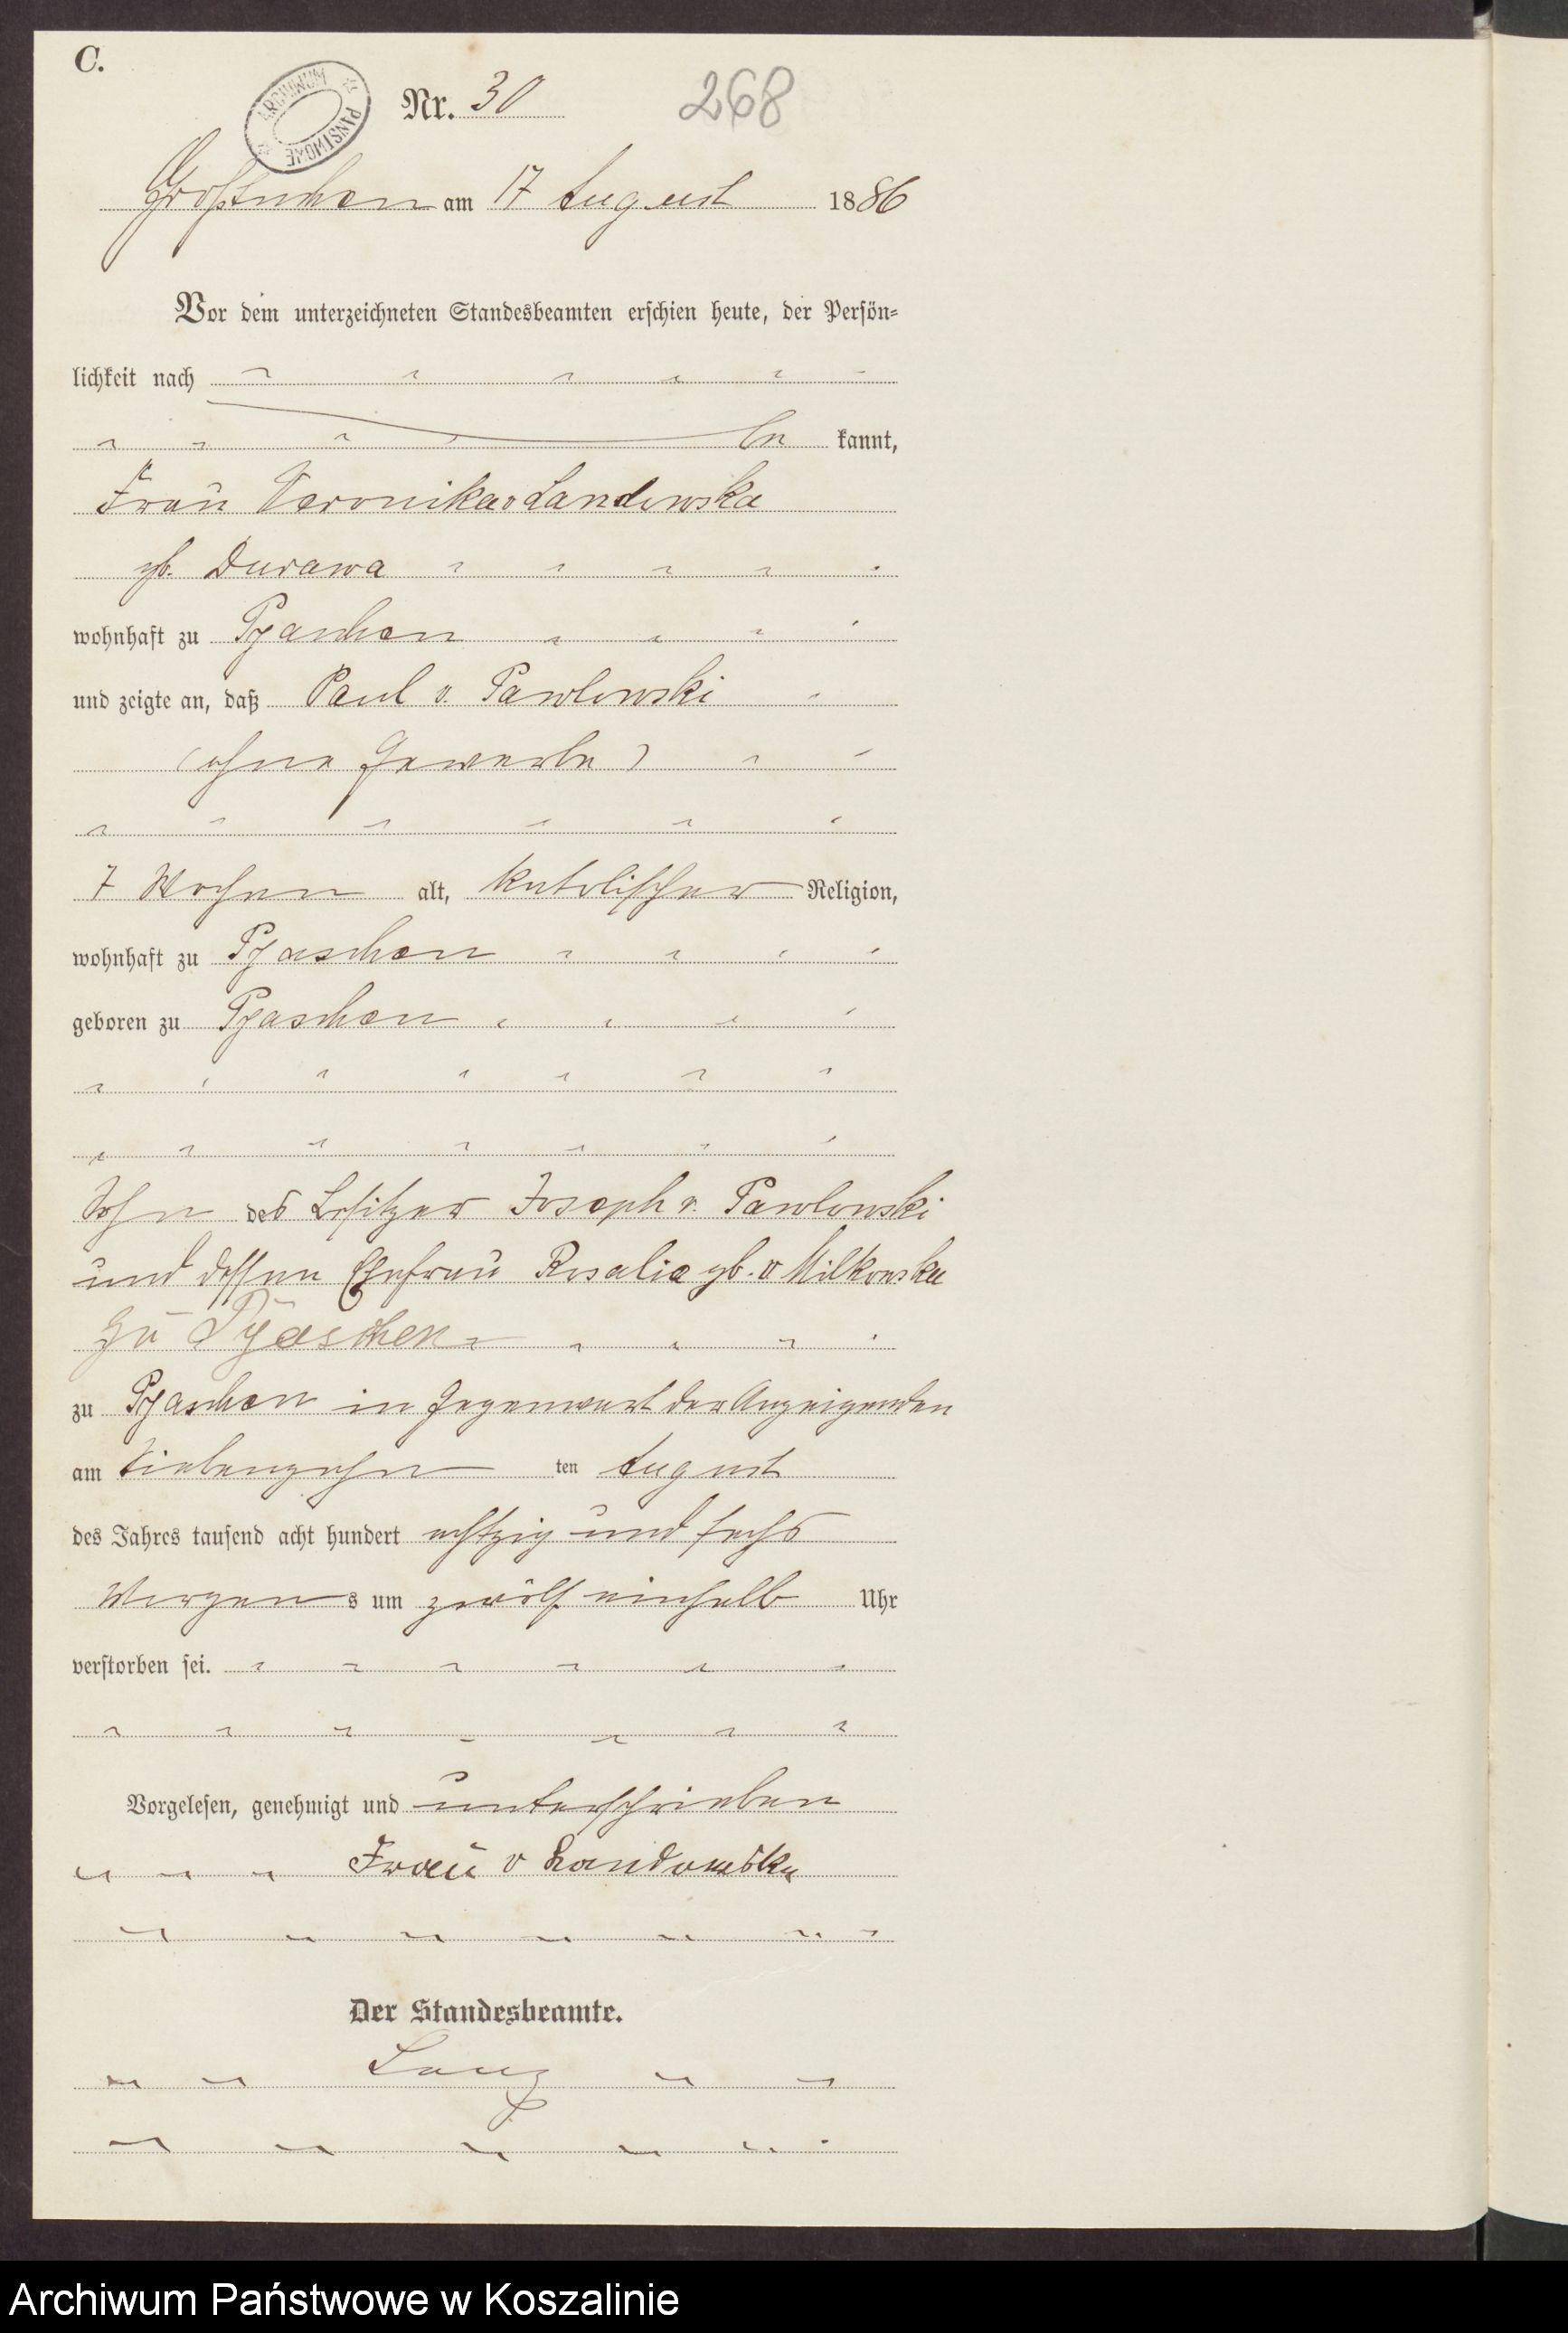 C.
ARCHIWUM PAŃSTWOWE
Nr. 30 268
Großtuchen am 17 August 1886
Vor dem unterzeichneten Standesbeamten erschien heute, der Persön-
lichkeit nach
be kannt,
Frau Veronika v Landowska
gb. Durawa
wohnhaft zu Pyaschen
und zeigte an, daß Paul v. Pawlowski
(ohne Gewerbe)
7 Wochen alt, katolischer Religion,
wohnhaft zu Pyaschen
geboren zu Pyaschen
Sohn des Besitzer Joseph v. Pawlowski
und dessen Ehefrau Rosalie gb. v Milkowska
zu Pyaschen
zu Pyaschen in Gegenwart der Anzeigenden
am siebenzehn ten August
des Jahres tausend acht hundert achtzig und sechs
Morgens um zwölf einhalb Uhr
verstorben sei.
Vorgelesen, genehmigt und unterschrieben
Frau v Landowska
Der Standesbeamte.
Archiwum Państwowe w Koszalinie